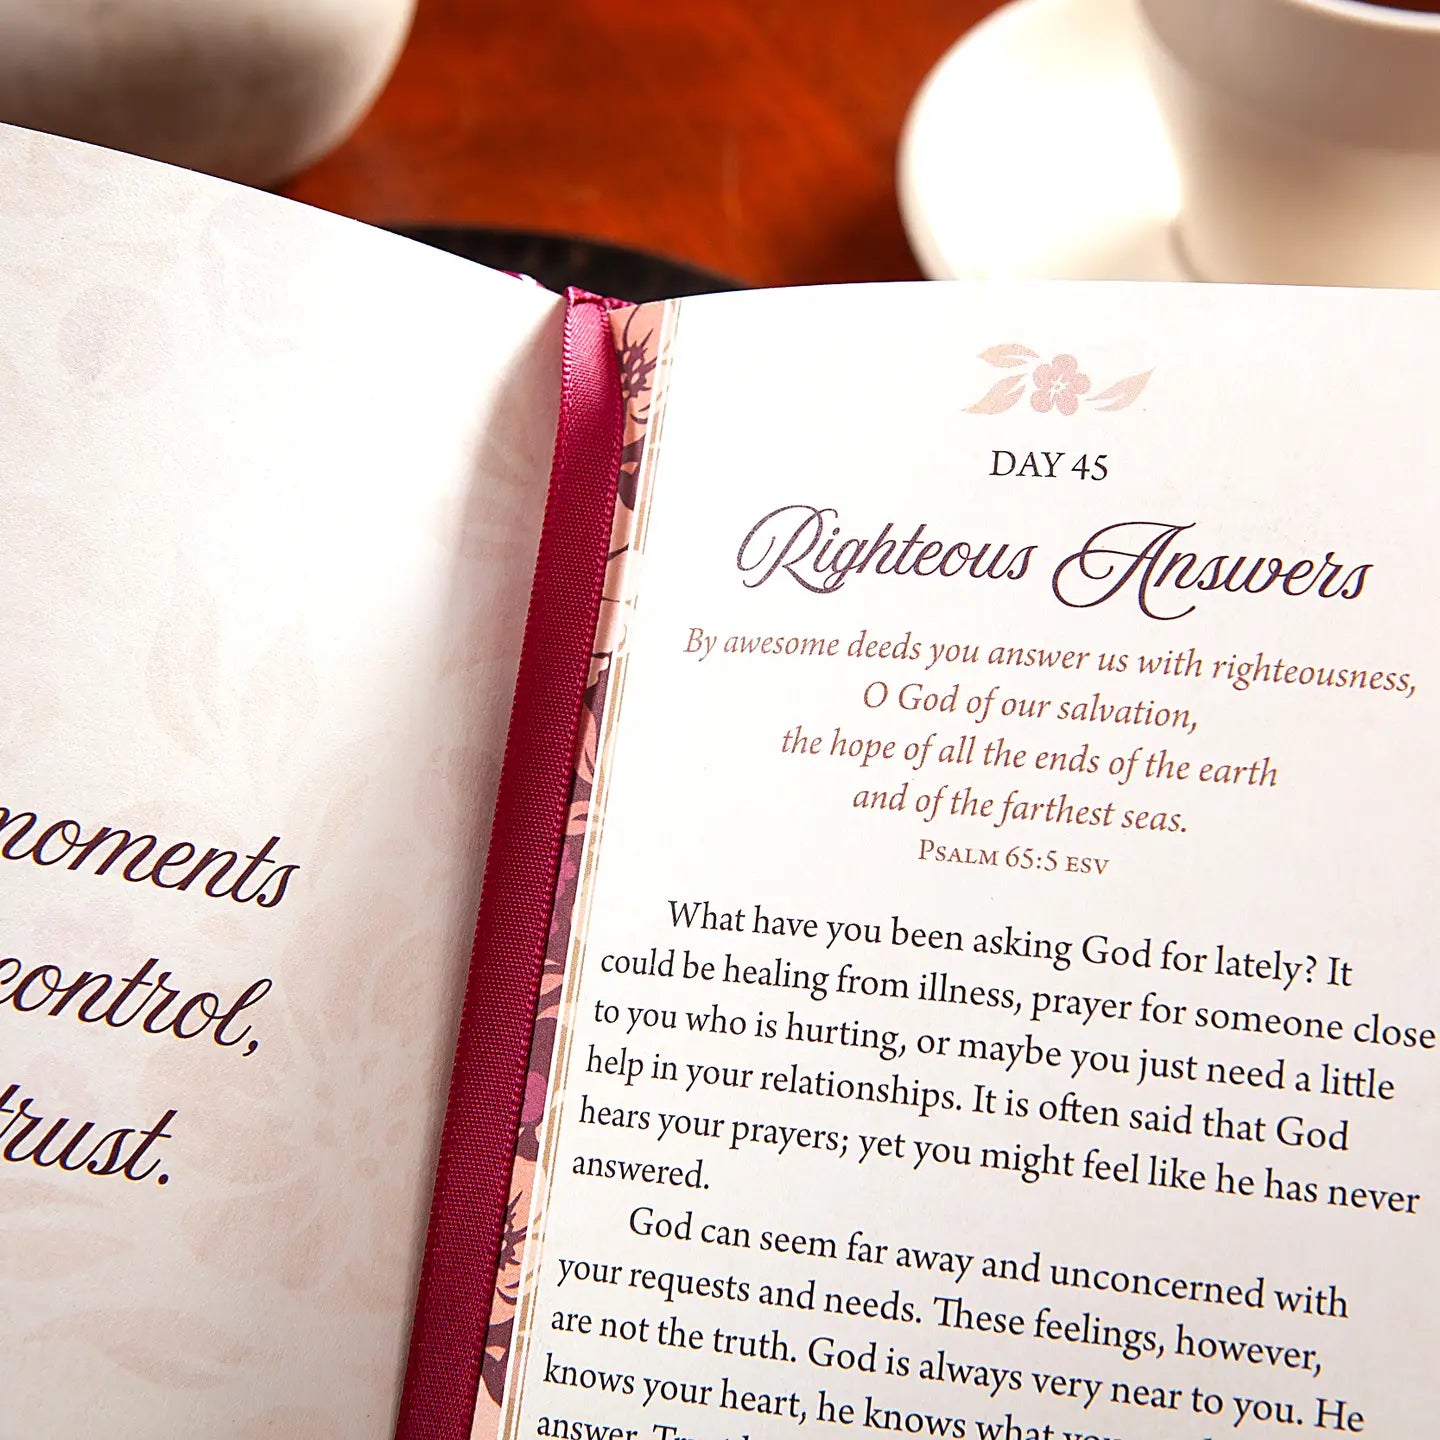 moments
control,
trust.
DAY 45
Righteous Answers
By awesome deeds you answer us with righteousness,
O God of our salvation,
the hope of all the ends of the earth
and of the farthest seas.
PSALM 65:5 ESV
What have you been asking God for lately? It
could be healing from illness, prayer for someone close
to you who is hurting, or maybe you just need a little
help in your relationships. It is often said that God
hears your prayers; yet you might feel like he has never
answered.
God can seem far away and unconcerned with
your requests and needs. These feelings, however,
are not the truth. God is always very near to you. He
knows your heart, he knows what
answer.